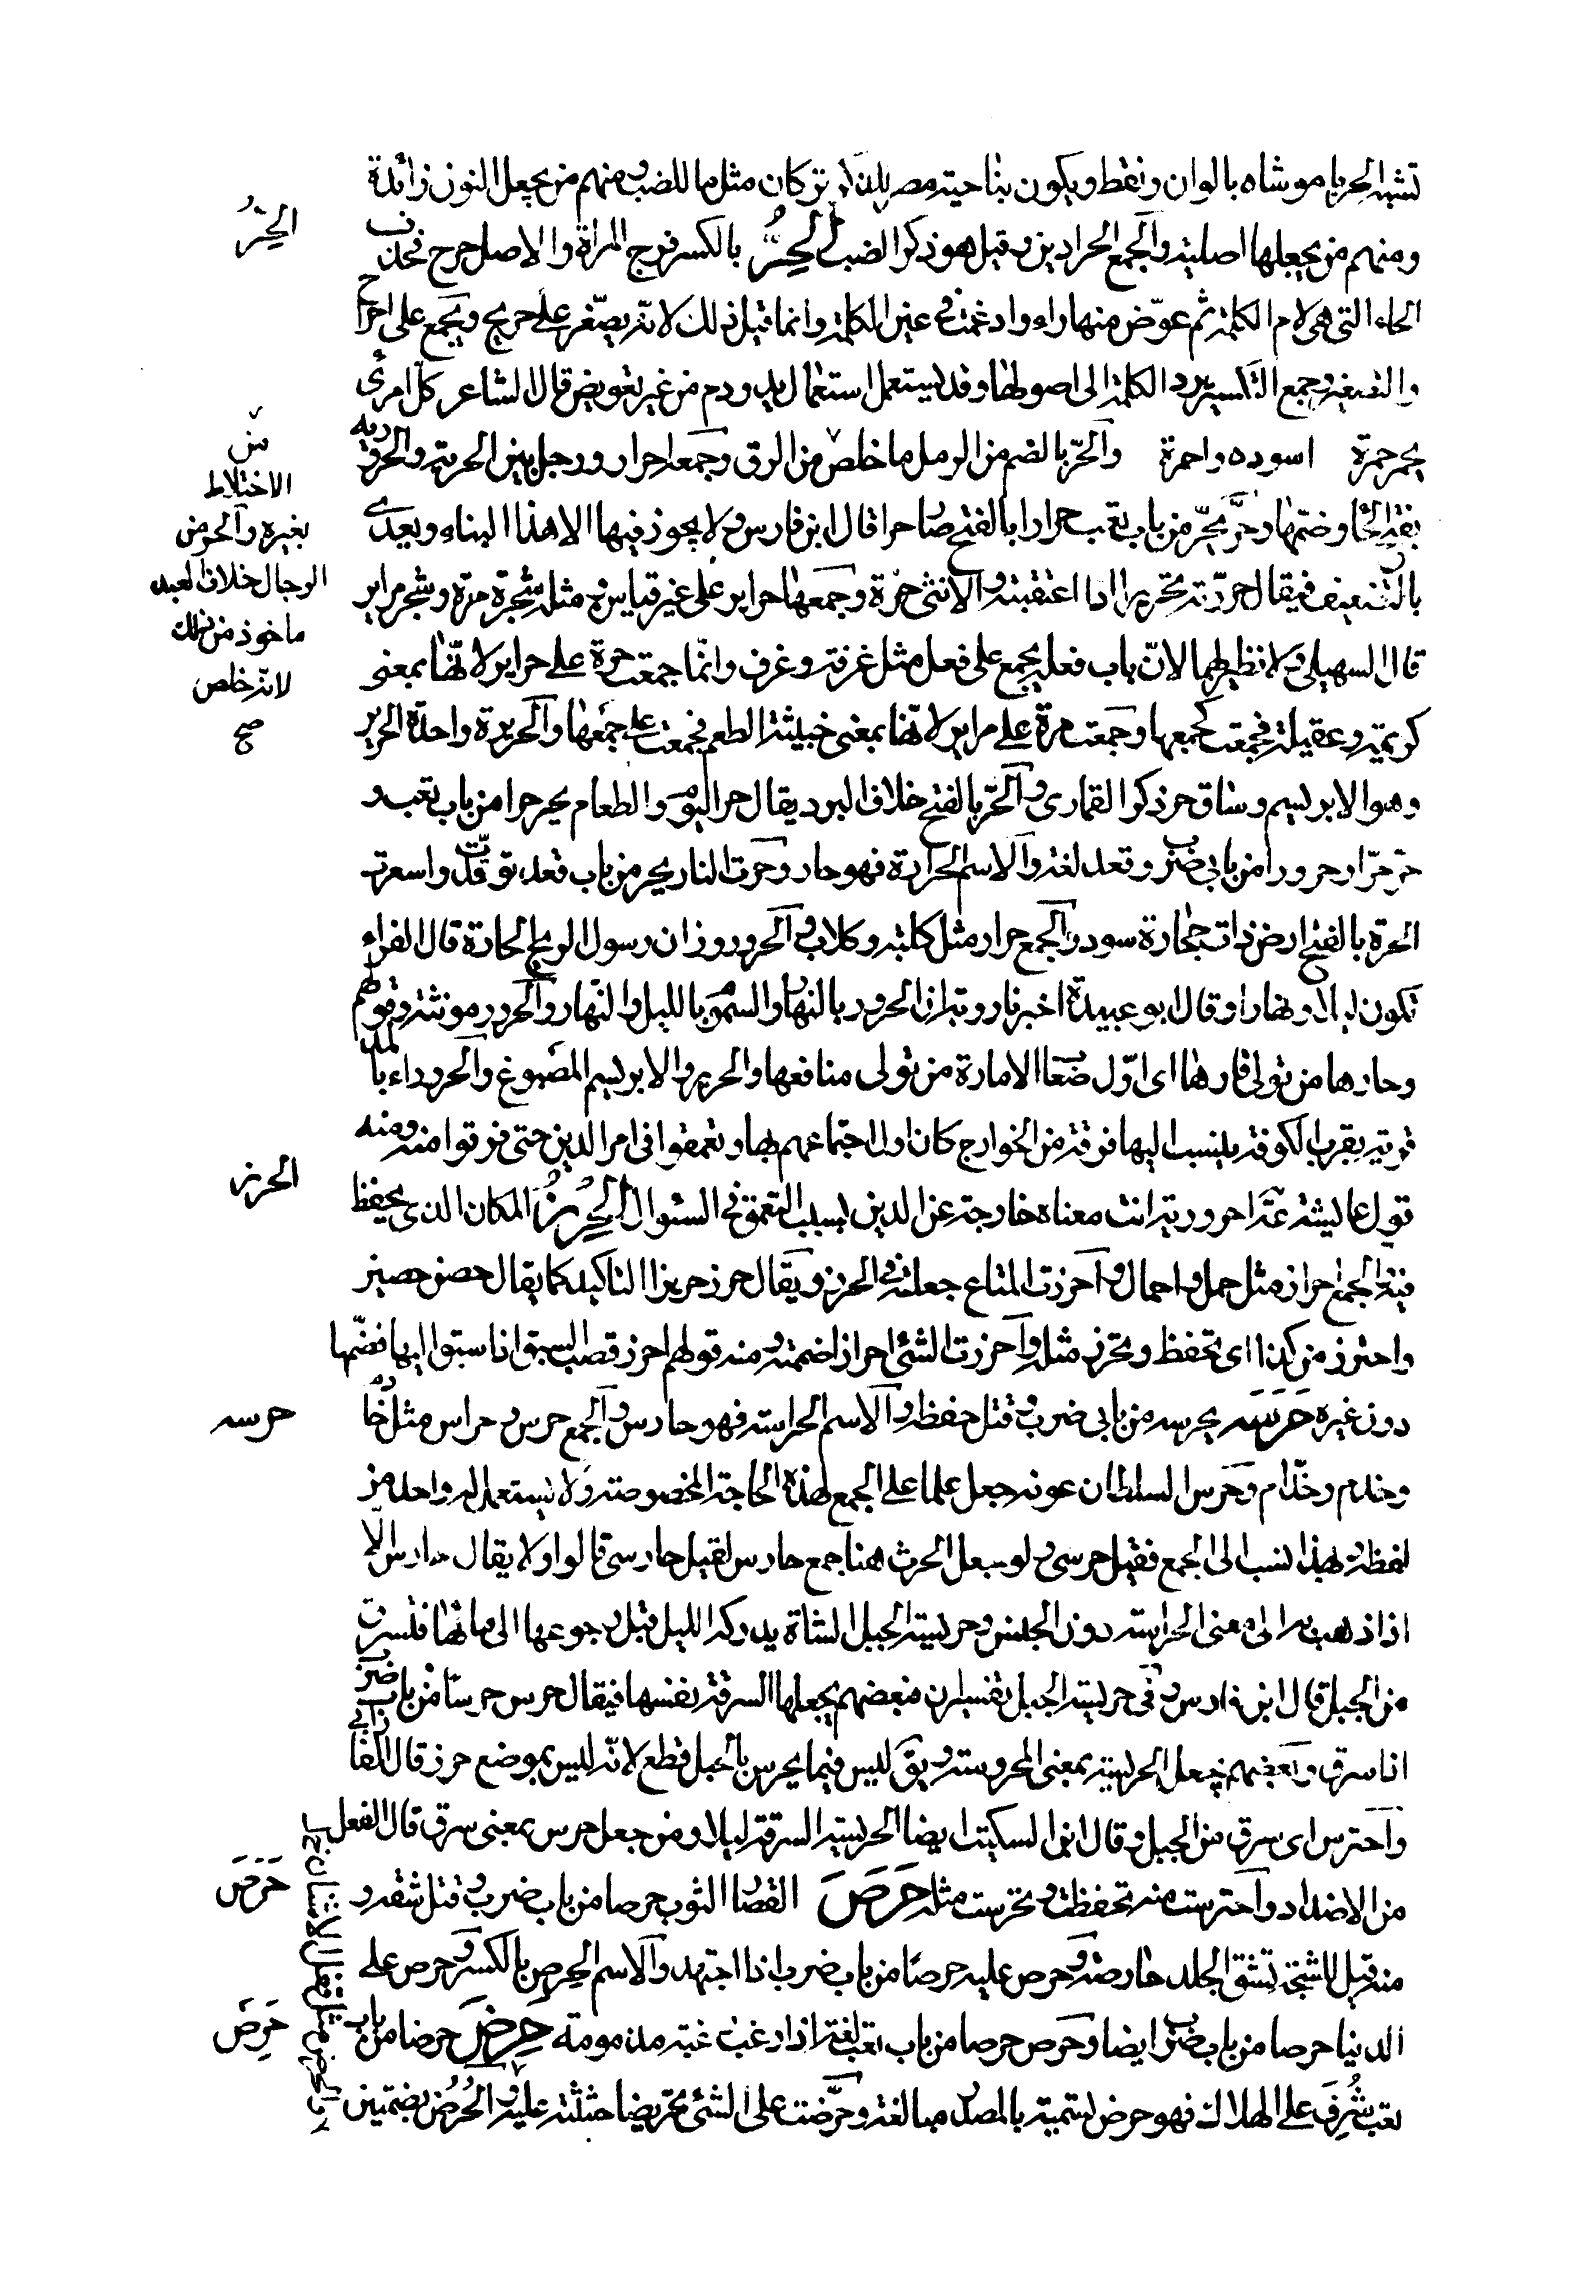 تشبه الحربا موشاه بالوان ونقط ويكون بناحية مصر للذكر نزكان مثل ما للضب ومنهم من يجعل النون زائدة
ومنهم من يجعلها اصلية والجمع الحرادين وقيل هو ذكر الضب الحِرُ بالكسر فرج المراة والاصل حرح فحذف
الحِرُ
الحاء التى هى لام الكلمة ثم عوّض منها راء وادغمت فى عين الكلمة وانما قيل ذلك لانه يصغّر على حريح ويجمع على احراح
والتصغير وجمع التكسير يرد الكلمة الى اصولها وقد يستعمل استعمال يد ودم من غير تعويض قال الشاعر كل امرئ
يحمر حمرة اسوده واحمرة والحرّ بالضم من الرمل ما خلص من الرق وجمعه احرار ورجل بين الحرية والحرورية
من
الاختلاط
بغيره والحر من
الرجال خلاف العبد
ماخوذ من ذلك
لانه خالص
صح
بفتح الحا وضمها وحرَّ يحرّ من باب تعب حرارا بالفتح صار حرا قال ابن فارس ولا يجوز فيها الا هذا البناء ويعدى
بالتضعيف فيقال حررته تحريرا اذا اعتقته والانثى حرة وجمعها حراير على غير قياس ومثله شجرة مرة وشجر مراير
قال السهيلى ولا نظير لهما لانّ باب فعلة يجمع على فعل مثل غرفة وغرف وانما جمعت حرة على حراير لانها بمعنى
كريمة وعقيلة فجمعت كجمعها وجمعت مرة على مراير لانها بمعنى خبيثة الطعم فجمعت على جمعها والحريرة واحدة الحرير
وهو الابريسم وساق حر ذكر القمارى والحرّ بالفتح خلاف البرد يقال حر اليوم والطعام يحر حرا من باب تعب و
حرّ حرّا وحرورا من بابي ضرب وقعد لغة والاسم الحرارة فهو حار وحرت النار يحر من باب قعد توقّدت واسعرت
الحرة بالفتح ارض ذات حجارة سود والجمع حرار مثل كلبة وكلاب والحرور وزان رسول الريح الحارة قال الفراء
تكون ليلا ونهارا وقال ابو عبيدة اخبرنا روبة ان الحرور بالنهار والسموم بالليل والنهار والحرور مونثة وقولهم
وحارها من تولى قارها اى اوّل صعاب الامارة من تولى منافعها والحرير والابريسم المصبوغ والحروراء بالمد
قرية بقرب الكوفة ينسب اليها فرقة من الخوارج كان اول اجتماعهم بها وتعمقوا فى امر الدين حتى مرقوا منه ومنه
قول عايشة عنها احرورية انت معناه خارجة عن الدين بسبب التعمق فى السئوال الحِرزُ المكان الذى يحفظ
الحرز
فيه والجمع احراز مثل حمل واحمال واحرزت المتاع جعلته فى الحرز ويقال حرز حريز التاكيد كما يقال حصن حصين
واحترز من كذا اى تحفظ وتحرز مثله واحرزت الشئ احرازا ضممته ومنه قولهم احرز قصب السبق اذا سبق اليها فضمّها
دون غيره حَرَسَه يحرسه من بابي ضرب وقتل حفظه والاسم الحراسة فهو حارس والجمع حرس وحراس مثل خادم
حرسه
وخدم وخدّام وحرس السلطان عونه جعل علما على الجمع لهذه الحاجة المخصوصة ولا يستعمل له واحد من
لفظه ولهذا نسب الى الجمع فقيل حرسى ولو جعل الحرس هنا جمع حارس لقيل حارسى قالوا ولا يقال حارسى الا
اذا ذهب به الى معنى الحراسة دون الجنس وحريسة الجبل الشاة يدركه الليل قبل رجوعها الى ماواها فتسرق
من الجبل قال ابن فارس وفى حريسة الجبل تفسيران فبعضهم يجعلها السرقة نفسها فيقال حرس حرسا من باب ضرب
اذا سرق وبعضهم يجعل الحريسة بمعنى المحروسة ويق ليس فيما يحرس بالجبل قطع لانه ليس بموضع حرز قال الفارابي
واحترس اى سرق من الجبل وقال ابن السكيت ايضا الحريسة السرقة ليلا ومن جعل حرس بمعنى سرق قال الفعل
من الاضداد واحترست منه تحفظت وتحرست مثله حَرَصَ القصار الثوب حرصا من باب ضرب وقتل شقه و
حَرَصَ
منه قيل للشجة تشق الجلد حارصة وحرص عليه حرصا من باب ضرب اذا اجتهد والاسم الحرص بالكسر وحرص على
الدنيا حرصا من باب ضرب ايضا وحرص حرصا من باب تعب لغة اذا رغب رغبة مذمومة حَرِضَ حرضا من باب
حَرِضَ
تعب شُرِفَ على الهلاك فهو حرض تسمية بالمصدر مبالغة وحرَّضت على الشئ تحريضا حثثته عليه والحُرُض بضمتين